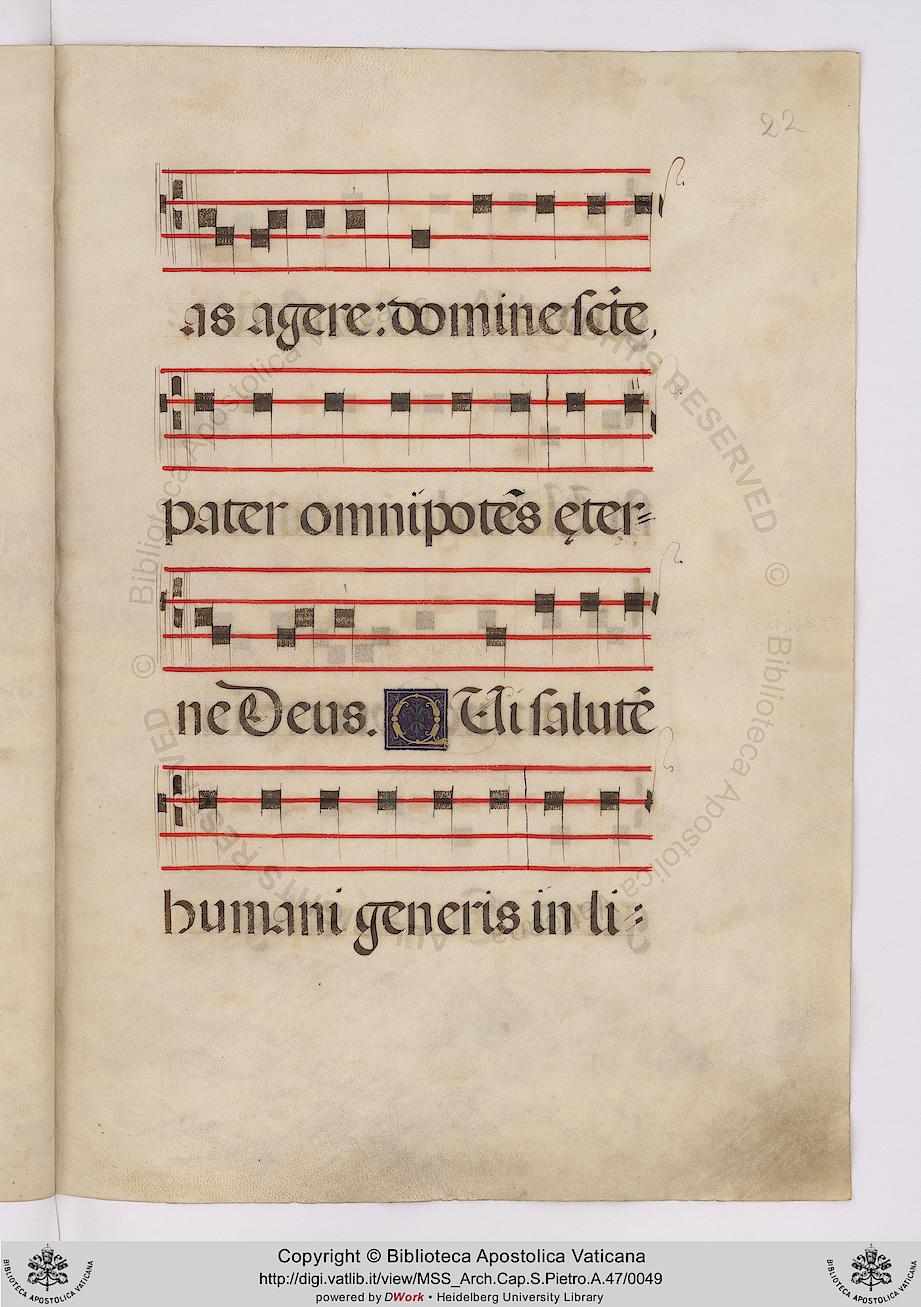 22
as agere: domine sc̄te,
pater omnipotēs ęter=
ne Deus. QUi salutē
humani generis in li=
© Biblioteca Apostolica Vaticana ALL RIGHTS RESERVED
Copyright © Biblioteca Apostolica Vaticana
http://digi.vatlib.it/view/MSS_Arch.Cap.S.Pietro.A.47/0049
powered by DWork • Heidelberg University Library
BIBLIOTECA APOSTOLICA VATICANA
BIBLIOTECA APOSTOLICA VATICANA